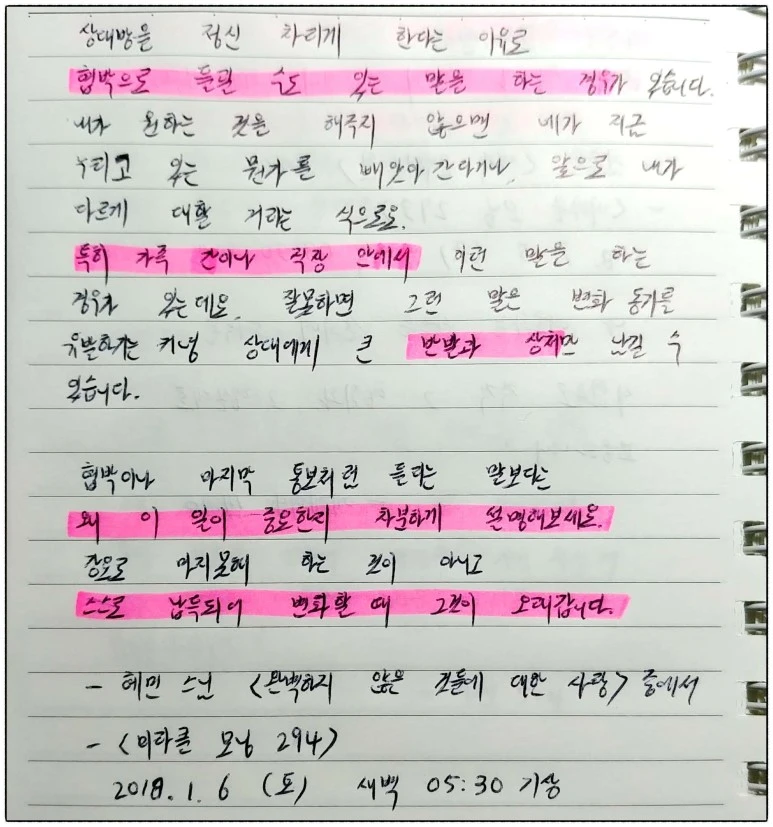 상대방을 정신 차리게 한다는 이유로
협박으로 들릴 수도 있는 말을 하는 경우가 있습니다.
내가 원하는 것을 해주지 않으면 네가 지금
누리고 있는 뭔가를 빼앗아 간다거나, 앞으로 내가
다르게 대할 거라는 식으로요.
특히 가족 간이나 직장 안에서 이런 말을 하는
경우가 있는데요, 잘못하면 그런 말은 변화 동기를
유발하기는 커녕 상대에게 큰 반발과 상처만 남길 수
있습니다.
협박이나 마지막 통보처럼 들리는 말보다는
왜 이 일이 중요한지 차분하게 설명해보세요.
강요로 마지못해 하는 것이 아니고
스스로 납득되어 변화할 때 그것이 오래갑니다.
- 혜민 스님 <완벽하지 않은 것들에 대한 사랑> 중에서
- <미라클 모닝 294>
2018. 1. 6 (토) 새벽 05:30 기상